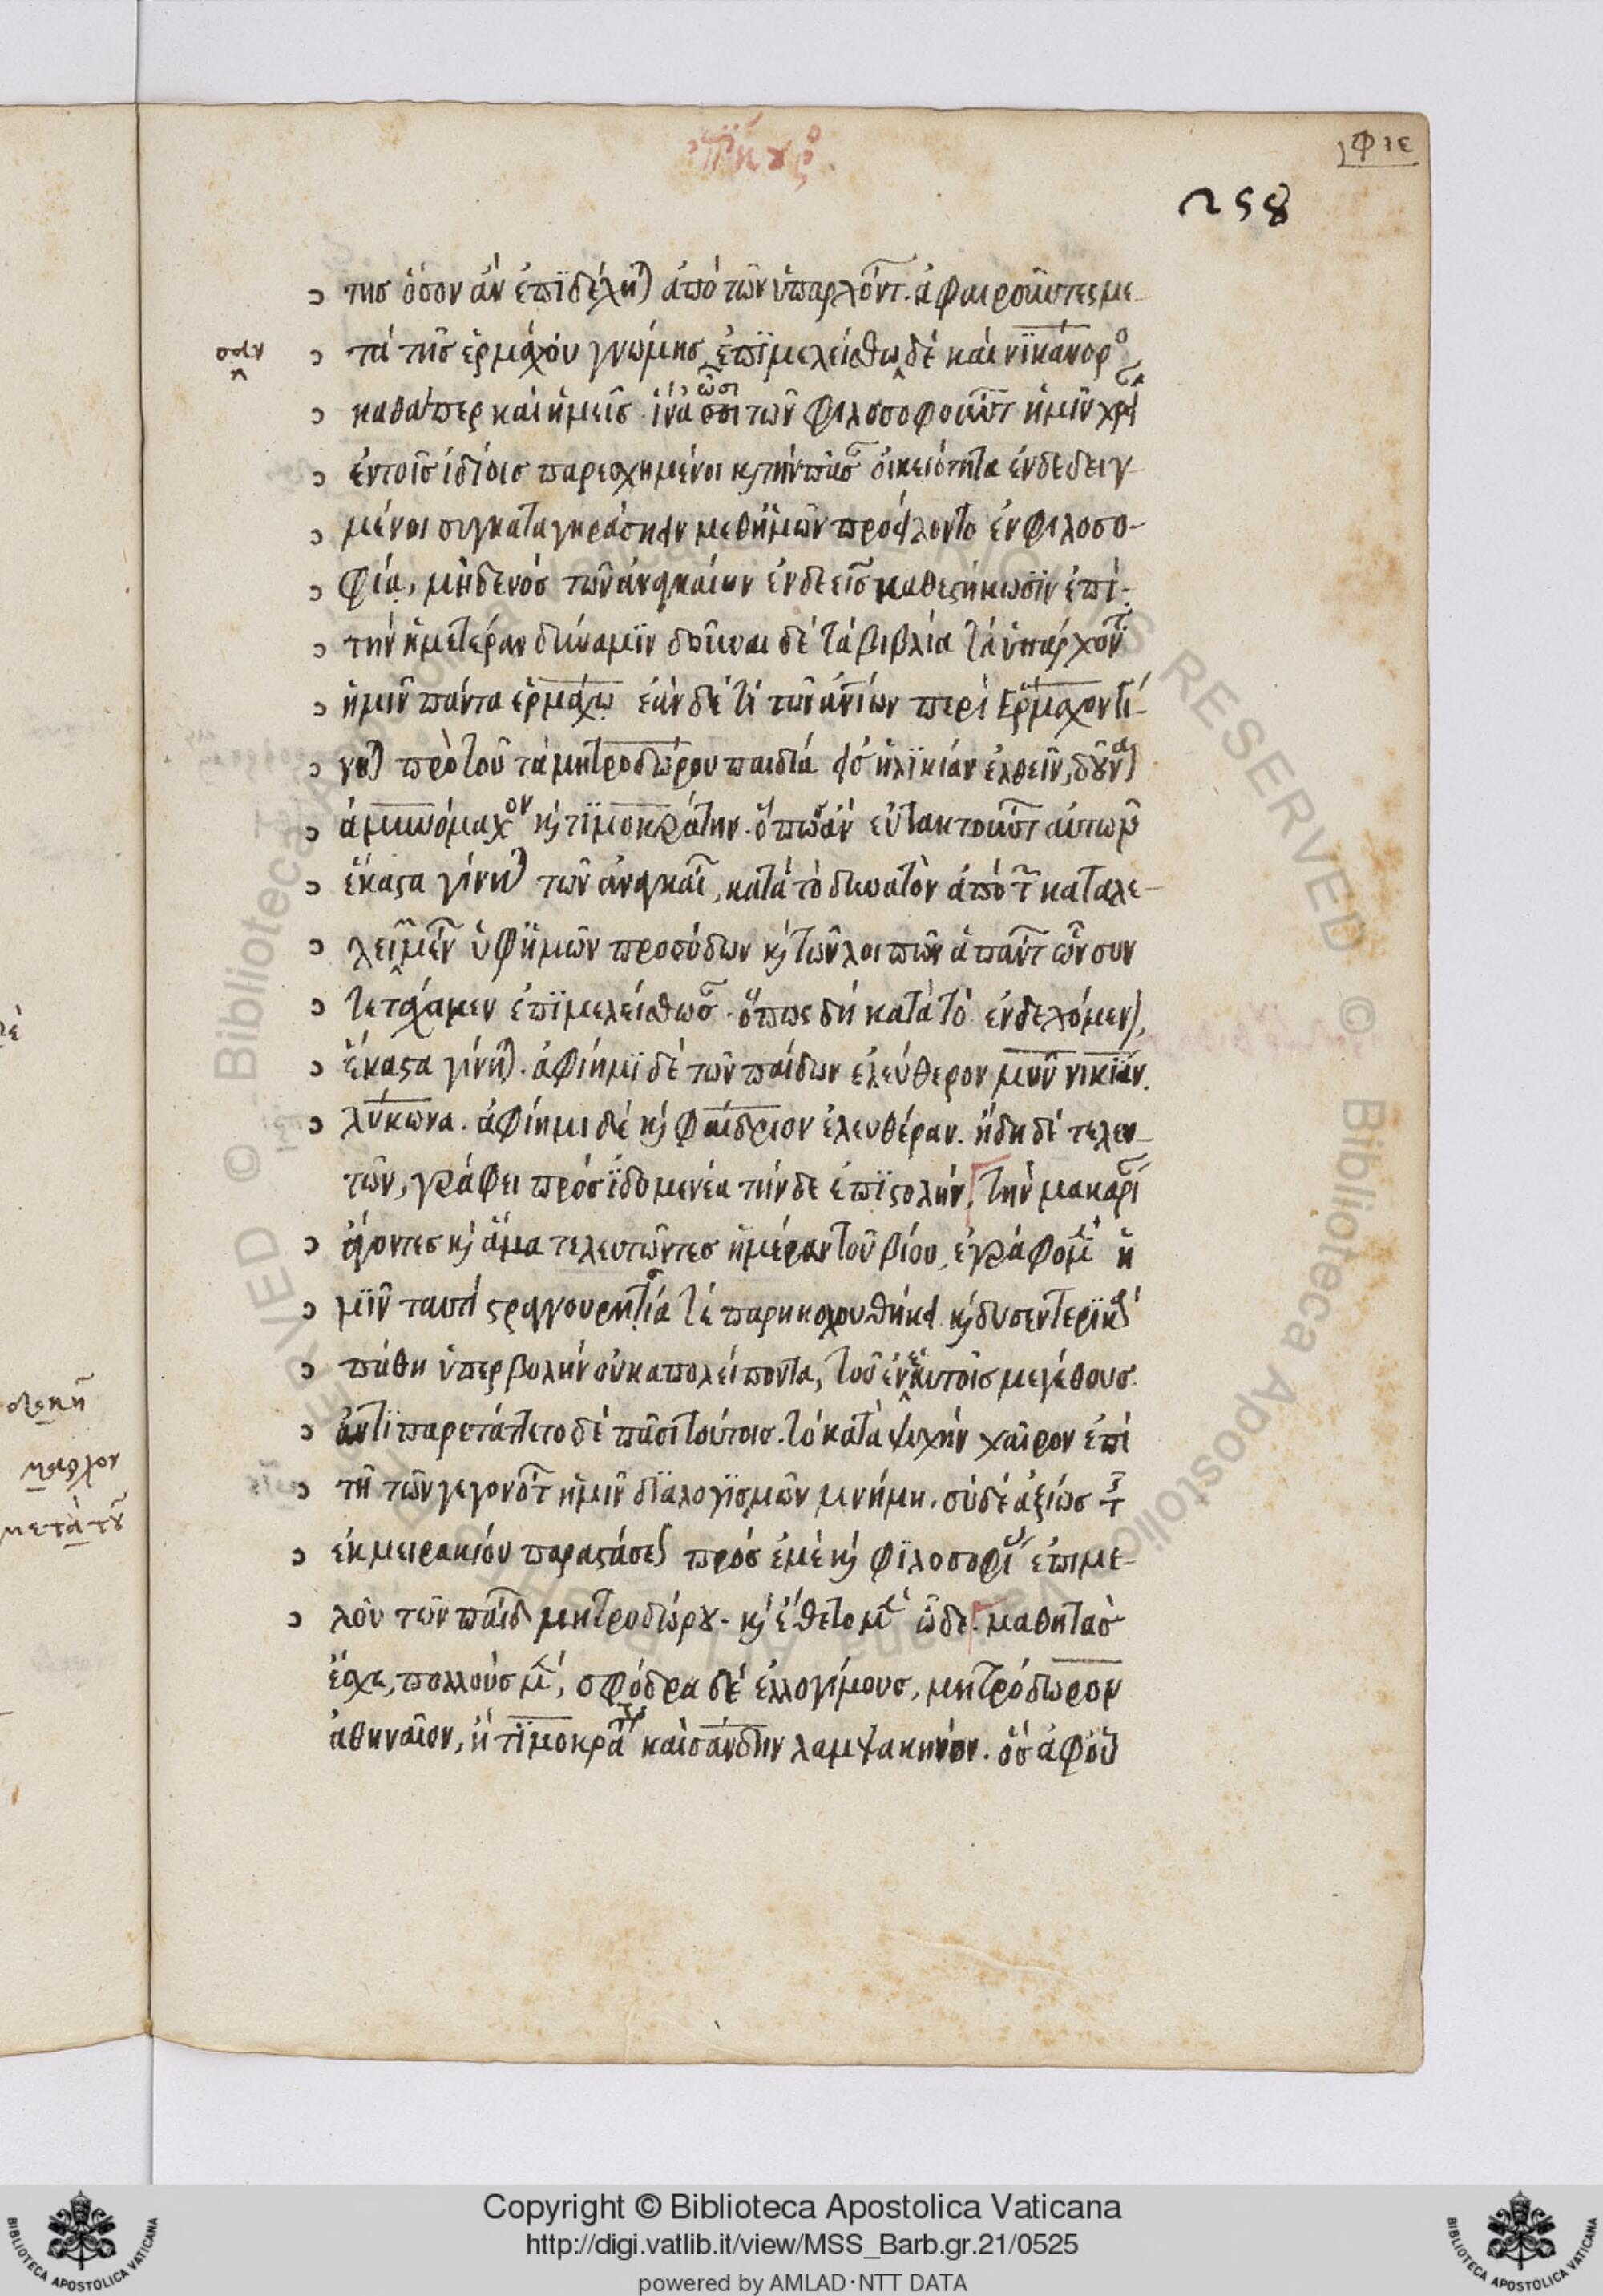 ἐπίκουρο
φιε
258
της ὅσον ἂν ἐπιδέχη) ἀπὸ τῶν ὑπαρχόντ. ἀφαιροῦντες με-
σαν
τὰ τῆς ἑρμάχου γνώμης ἐπιμελείσθω δὲ καὶ νικάνορο
ῶσι
καθάπερ καὶ ἡμεῖς. ἵνα ὅσοι τῶν φιλοσοφούντ ἡμῖν χρεί
ἐν τοῖς ἰδίοις παρεσχημένοι κ τὴν πᾶσ οἰκειότητα ἐνδεδειγ-
μένοι συγκαταγηράσκειν μεθ ἡμῶν προείλοντο ἐν φιλοσο-
φία, μηδενὸς τῶν ἀναγκαίων ἐνδεεῖς καθεστήκωσιν ἐπὶ
τὴν ἡμετέραν δύναμιν δοῦναι δὲ τὰ βιβλία τὰ ὑπάρχοντ
ἡμῖν πάντα ἑρμάχῳ ἐὰν δέ τι τῶν ἀνίων περὶ Ἕρμαχον τί-
γη) πρὸ τοῦ τὰ μητροδώρου παιδία εἰς ἡλικίαν ἐλθεῖν, δοῦναι
ἀμυνόμαχον κ τιμοκράτην. ὅπως ἂν εὐτακτούντ αὐτῶν
ἕκαστα γίνη) τῶν ἀναγκαί, κατὰ τὸ δυνατὸν ἀπὸ τ καταλε-
λειμμέν ὑφ ἡμῶν προσόδων κ τῶν λοιπῶν ἁπάντ ὧν συν
τετάχαμεν ἐπιμελείσθωσ. ὅπως δὴ κατὰ τὸ ἐνδεχόμεν),
ἕκαστα γίνη). ἀφίημι δὲ τῶν παίδων ἐλεύθερον μῦν νικίαν.
λύκωνα. ἀφίημι δὲ κ φαίδριον ἐλευθέραν. ἤδη δὲ τελευ-
τῶν, γράφει πρὸς ἰδομενέα τήνδε ἐπιστολήν, τὴν μακαρί
ἄγοντες κ ἅμα τελευτῶντες ἡμέραν τοῦ βίου, ἐγράφομεν ἡ
μῖν ταυτί στραγγουρητία τέ παρηκολουθήκει κ δυσεντερικὰ
πάθη ὑπερβολὴν οὐκ ἀπολείποντα, τοῦ ἐν ἑαυτοῖς μεγέθους.
ἀντιπαρετάττετο δὲ πᾶσι τούτοις. τὸ κατὰ ψυχὴν χαῖρον ἐπὶ
τῇ τῶν γεγονότ ἡμῖν διαλογισμῶν μνήμη. σὺ δὲ ἀξίως τ
ἐκ μειρακίου παραστάσε) πρὸς ἐμὲ κ φιλοσοφί ἐπιμε-
λοῦ τῶν παίδ μητροδώρου. κ ἔθετο μὲν ὧδε. μαθητὰς
ἔσχε, πολλοὺς μὲν, σφόδρα δὲ ἐλλογίμους, μητρόδωρον
ἀθηναῖον, ἢ τιμοκρά καὶ σάνδην λαμψακηνόν. ὃς ἀφ οὗ
μετὰ τοῦ
Copyright © Biblioteca Apostolica Vaticana
http://digi.vatlib.it/view/MSS_Barb.gr.21/0525
powered by AMLAD·NTT DATA
BIBLIOTECA APOSTOLICA VATICANA
BIBLIOTECA APOSTOLICA VATICANA